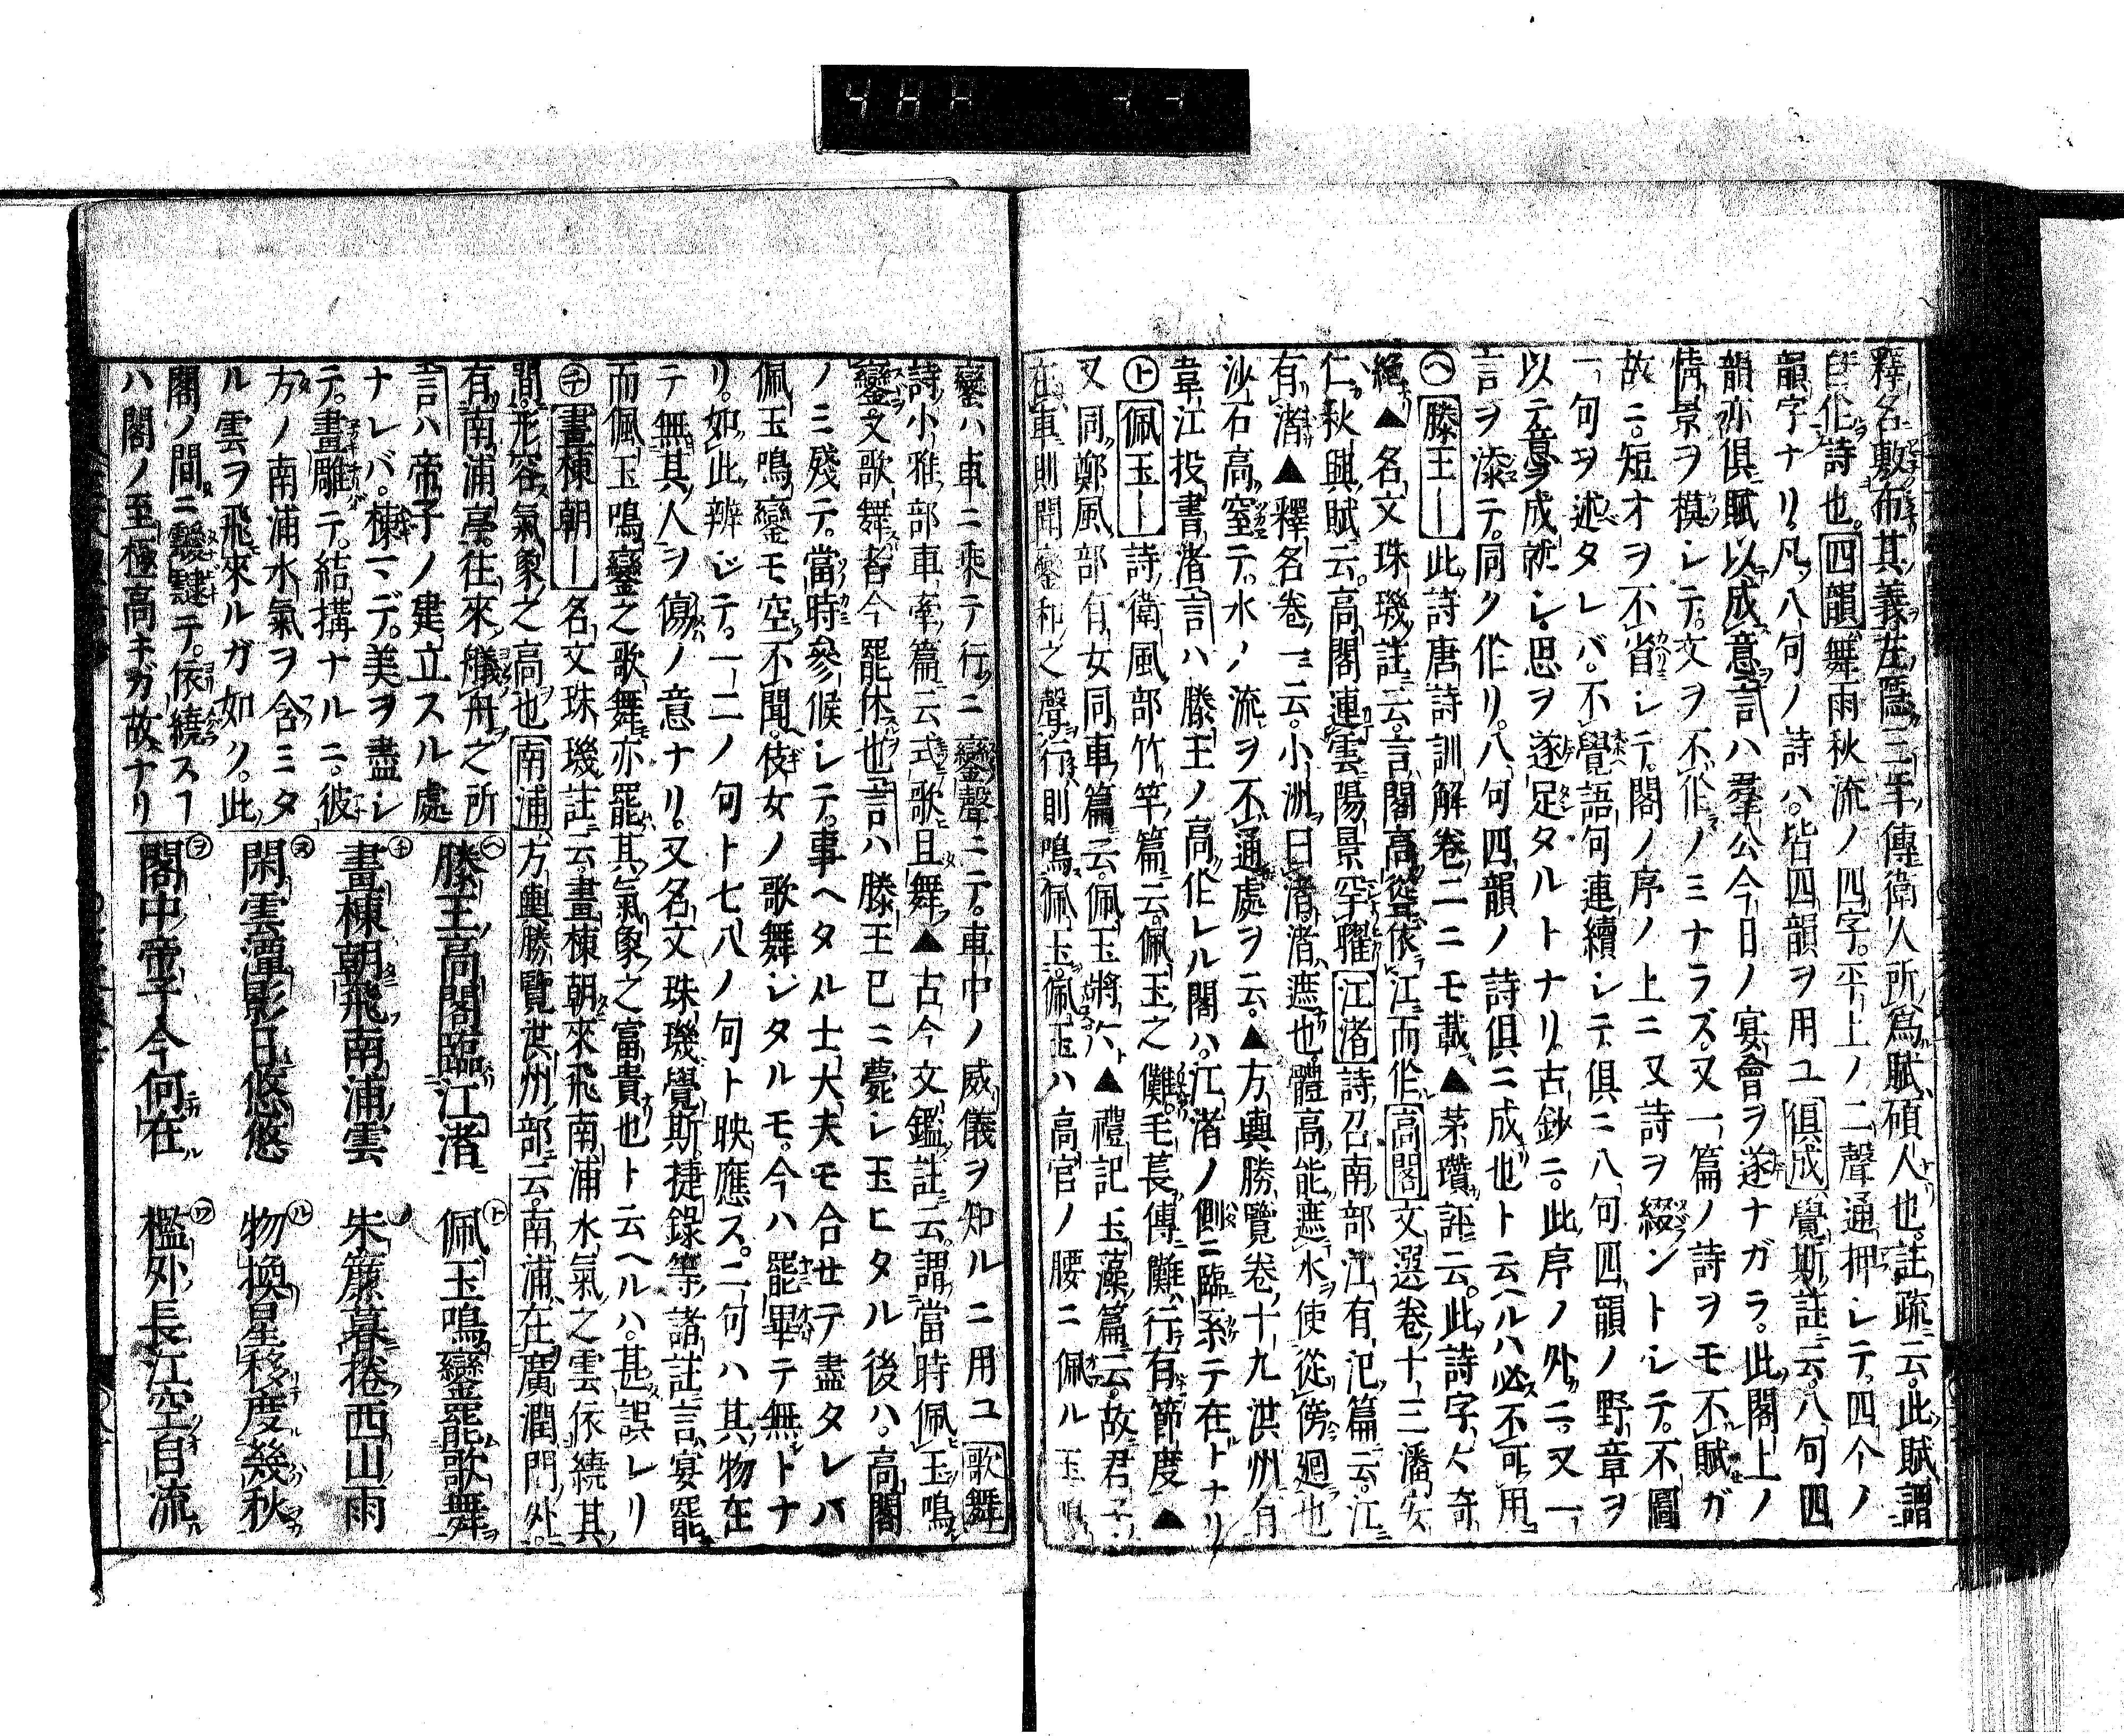 釋名敷布其義左隱三年傳衛人所爲賦碩人也註疏云此賦謂
自作詩也四韻舞雨秋流ノ四字平上ノ二聲通押シテ四个ノ
韻字ナリ凡八句ノ詩ハ皆四韻ヲ用ユ俱成覺斯註云八句四
韻亦俱賦以成意言ハ羣公今日ノ宴會ヲ遂ナガラ此閣上ノ
情景ヲ模シテ文ヲ不作ノミナラズ又一篇ノ詩ヲモ不賦ガ
故ニ短才ヲ不省シテ閣ノ序ノ上ニ又詩ヲ綴ントシテ不圖
一句ヲ述タレバ不覺語句連續シテ俱ニ八句四韻ノ野章ヲ
以テ意ヲ成就シ思ヲ遂足タルトナリ古鈔ニ此序ノ外ニ又一
言ヲ添テ同ク作リ八句四韻ノ詩俱ニ成也ト云ヘルハ必不可用
㋬滕王｜此詩唐詩訓解卷二ニモ載▲茅瓚評云此詩字人奇
絕▲名文珠璣註云言閣高聳依江而作高閣文選卷十三潘安
仁秋興賦云高閣連雲陽景罕曜江渚詩召南部江有汜篇云江
有渚▲釋名卷一云小洲曰渚渚遮也體高能遮水使從傍廻也
沙石高窒テ水ノ流ヲ不通處ヲ云▲方輿勝覽卷十九洪州有
韋江投書渚言ハ滕王ノ高作レル閣ハ江渚ノ側ニ臨系テ在ドナリ
㋣佩玉｜詩衛風部竹竿篇云佩玉之儺毛萇傳儺行有節度▲
又同鄭風部有女同車篇云佩玉將ヽ▲禮記玉藻篇云故君子
在車則聞鸞和之聲行則鳴佩玉佩玉ハ高官ノ腰ニ佩ル玉
鑾ハ車ニ乘テ行ニ鑾聲ニテ車中ノ威儀ヲ知ルニ用ユ歌舞
詩小雅部車舝篇云式歌且舞▲古今文鑑註云謂當時佩玉鳴
鑾文歌舞者今罷休也言ハ滕王已ニ薨シ玉ヒタル後ハ高閣
ノミ殘テ當時參候シテ事ヘタル士大夫モ合せテ盡タレバ
佩玉鳴鑾モ空不聞枝女ノ歌舞シタルモ今ハ罷畢テ無トナ
リ如此辨ジテ一二ノ句ト七八ノ句ト映應ス二句ハ其物在
テ無其人ヲ傷ノ意ナリ又名文珠璣覺斯捷錄等諸註言宴罷
而佩玉鳴鑾之歌舞亦罷其氣象之富貴也ト云ヘルハ甚誤レリ
㋠畫棟朝｜名文珠璣註云畫棟朝來飛南浦水氣之雲依繞其
間形容氣象之高也南浦方輿勝覽洪州部云南浦在廣潤門外
有南浦亭往來艤舟之所
言ハ帝子ノ建立スル處
ナレバ棟ニデ美ヲ盡シ
テ畫雕テ結搆ナルニ彼
方ノ南浦水氣ヲ含ミタ
ル雲ヲ飛來ルガ如ク此
閣ノ間ニ靉靆テ依繞スヿ
ハ閣ノ至極高キガ故ナリ
㋬滕王高閣臨江渚　㋣佩玉鳴鑾罷歌舞
㋠畫棟朝飛南浦雲　朱簾暮捲西山雨
㋦閑雲潭影日悠悠　㋸物換星移度幾秋
㋾閣中帝子今何在　㋻檻外長江空自流